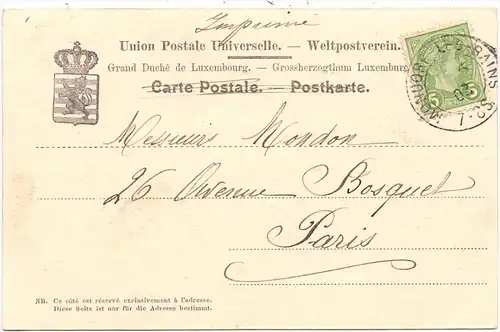 Imprimé
Union Postale Universelle. — Weltpostverein.
Grand Duché de Luxembourg. — Grossherzogthum Luxemburg
Carte Postale. — Postkarte.
MONDORF LES BAINS
7-8S
5 5
Messieurs Mondon
26 Avenue Bosquet
Paris
NB. Ce côté est réservé exclusivement à l'adresse.
Diese Seite ist nur für die Adresse bestimmt.